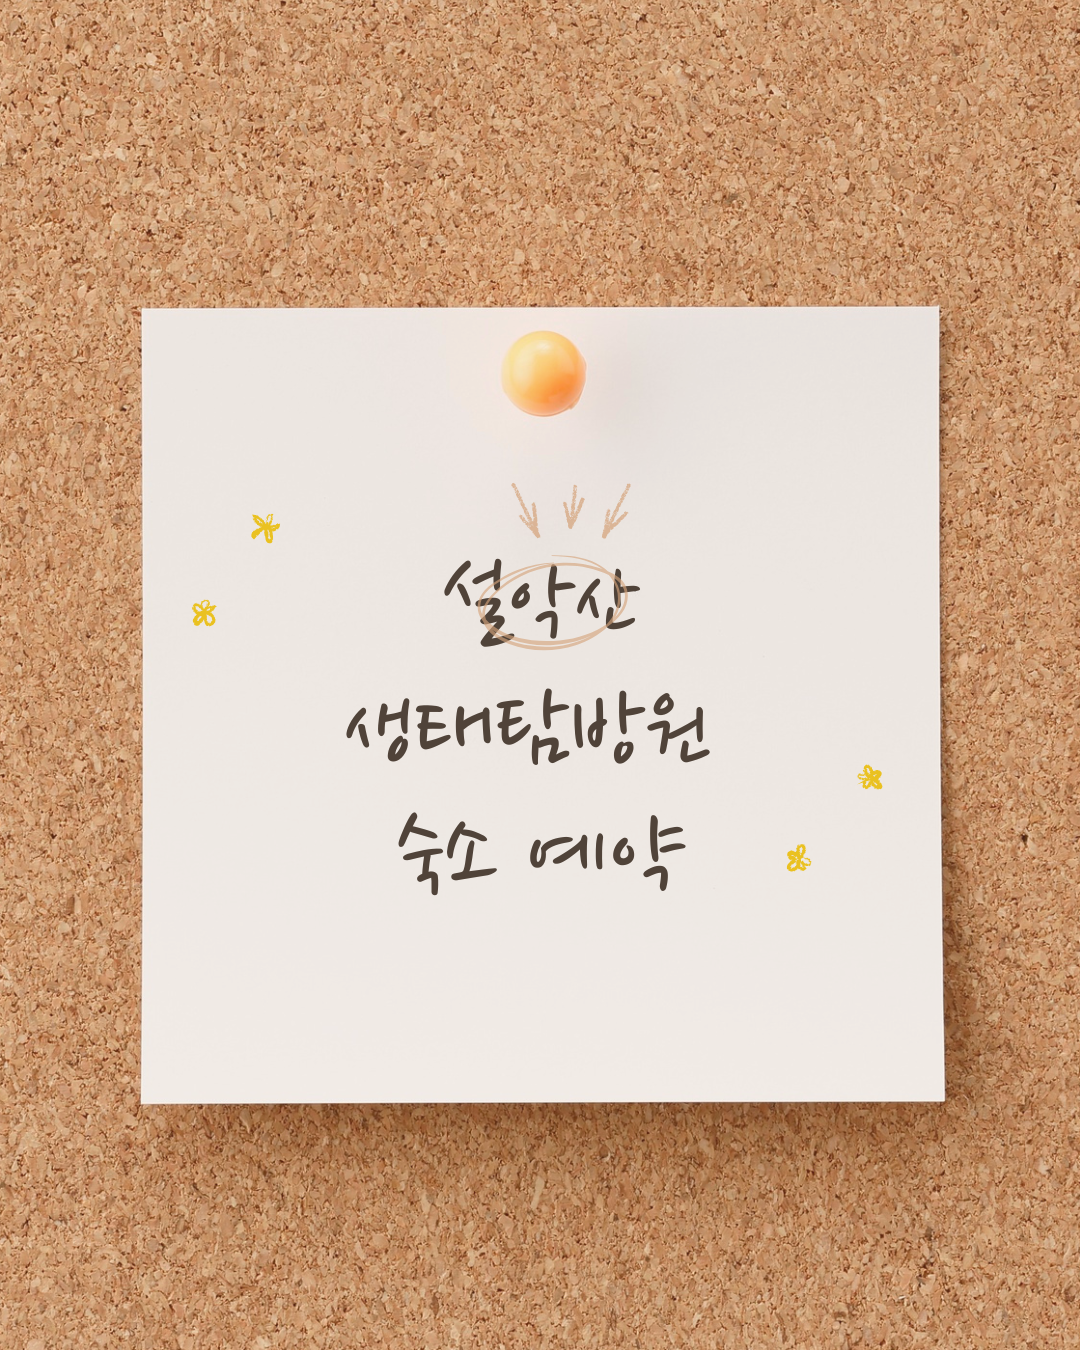 설악산
생태탐방원
숙소 예약